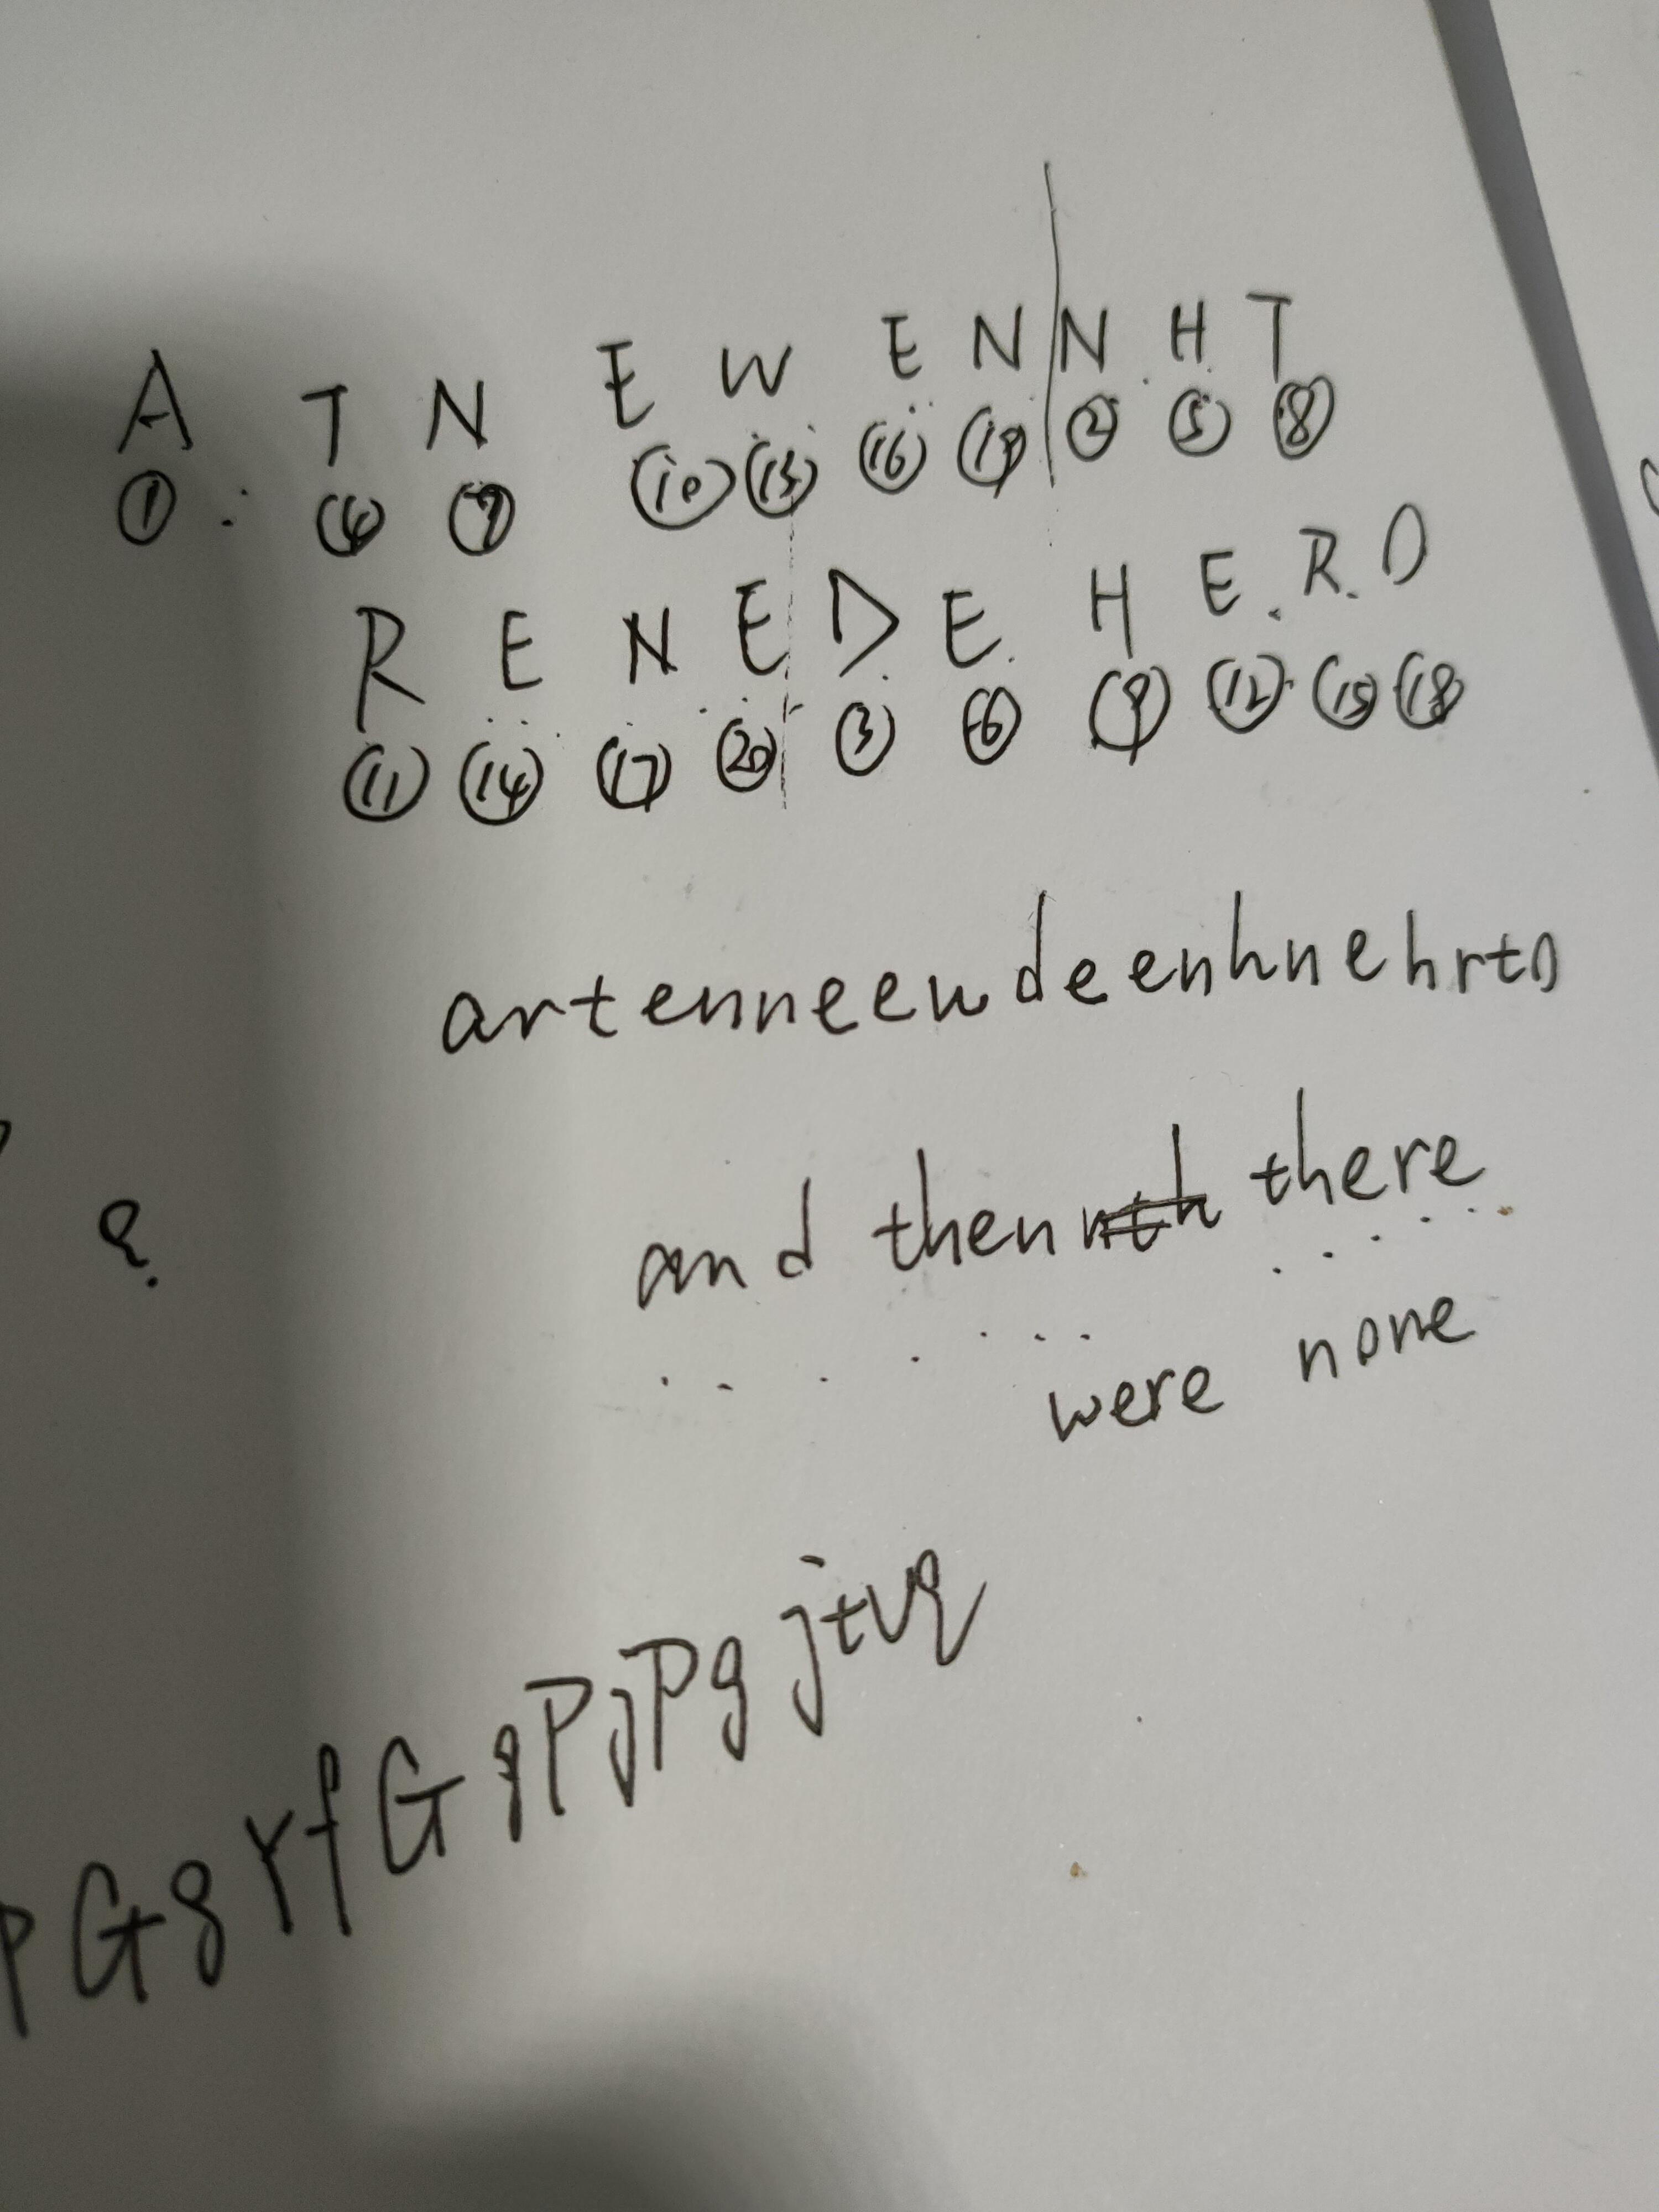 A T N E W E N N H T
① ④ ⑦ ⑩ ⑬ ⑯ ⑲ ② ⑤ ⑧
R E N E D E H E R O
⑪ ⑭ ⑰ ⑳ ③ ⑥ ⑨ ⑫ ⑮ ⑱
artenneewdeenhnehrto
and then there
were none
?
PGgrfGqPjPgjtvq